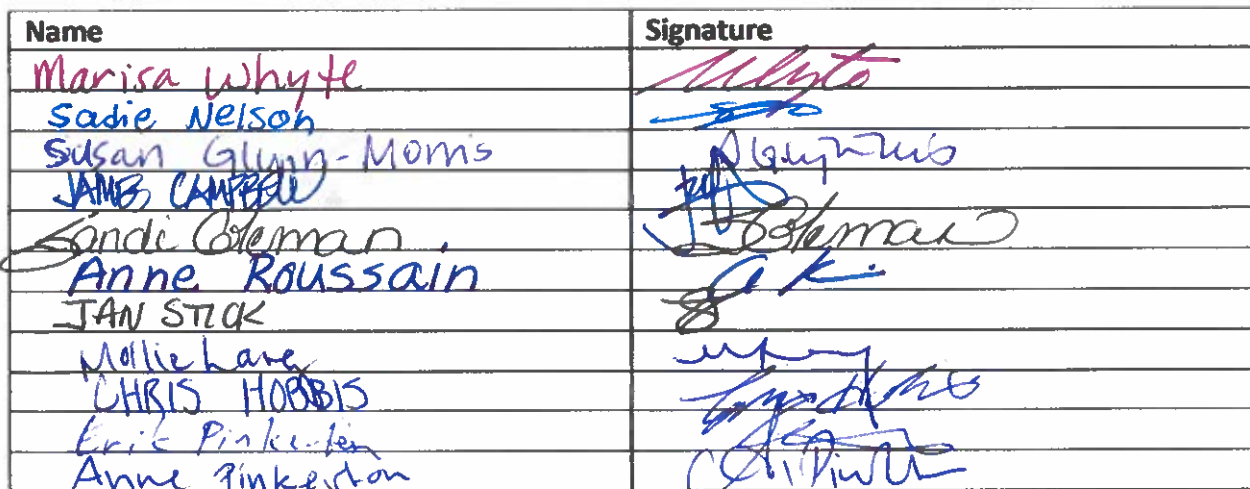 Name Signature
Marisa Whyte Whyte
Sadie Nelson
Susan Glynn-Morris
JAMES CAMPBELL
Sandi Coleman Coleman
Anne Roussain
JAN STICK
Mollie
CHRIS HOBBIS
Erik Pinkerton
Anne Pinkerton